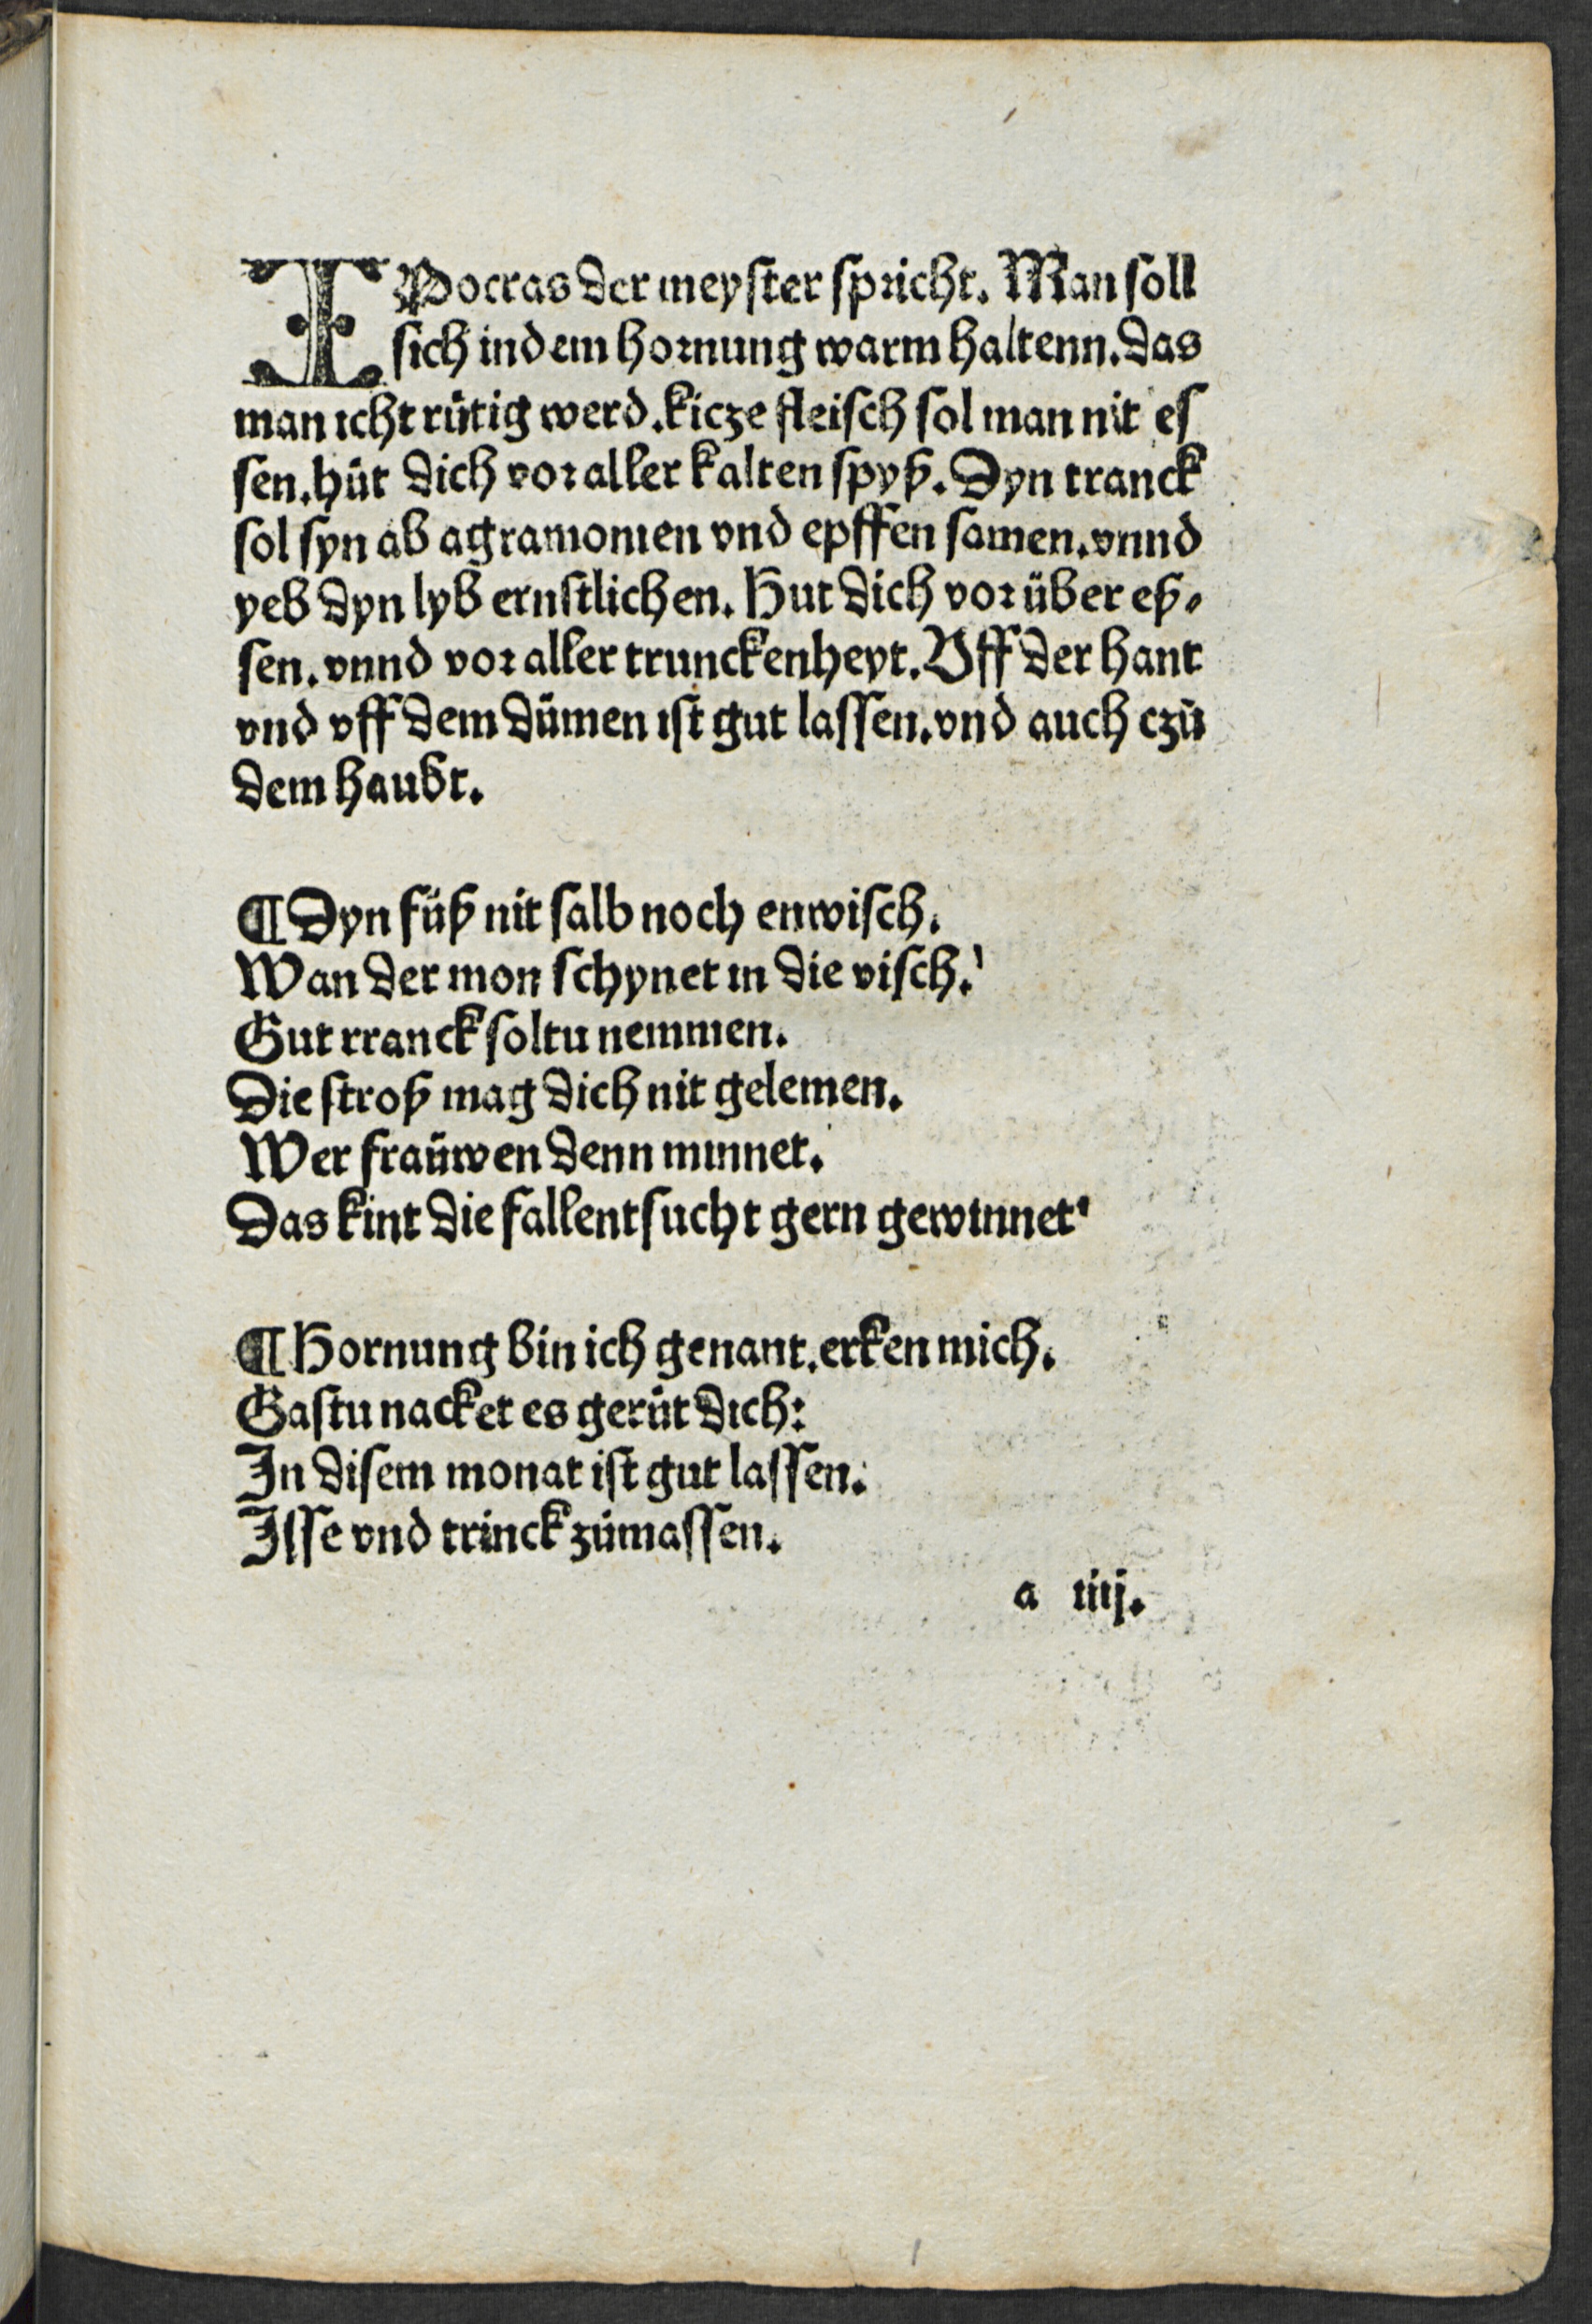 IPocras der meyſter ſpꝛicht. Man ſoll
ſich in dem hoꝛnung warm haltenn. das
man icht rütig werd. kicze fleiſch ſol man nit eſ
ſen. hüt dich voꝛ aller kalten ſpyß. Dyn tranck
ſol ſyn ab agramonien vnd epffen ſamen. vnnd
yeb dyn lyb ernſtlichen. Hut dich voꝛ über eß⸗
ſen. vnnd voꝛ aller trunckenheyt. Vff der hant
vnd vff dem dümen iſt gut laſſen. vnd auch czů
dem haubt.
¶ Dyn füß nit ſalb noch enwiſch.
Wan der mon ſchynet in die viſch.
Gut rranck ſoltu nemmen.
Die ſtroß mag dich nit gelemen.
Wer fraüwen denn minnet.
Das kint die fallentſucht gern gewinnet'
¶ Hornung bin ich genant. erken mich.
Gaſtu nacket es gerüt dich:
In diſem monat iſt gut laſſen.
Iſſe vnd trinck zůmaſſen.
a iiij.